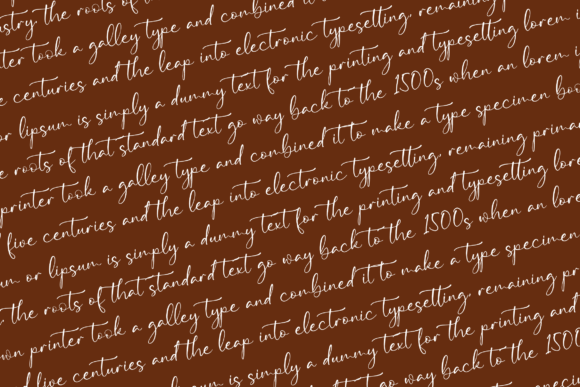 ustry the roots of
ter took a galley type and combined it
e centuries and the leap into electronic typesetting, remaining
or lipsum is simply a dummy text for the printing and typesetting lorem
e roots of that standard text go way back to the 1500s when an lorem i
printer took a galley type and combined it to make a type specimen boo
five centuries and the leap into electronic typesetting, remaining prima
um or lipsum is simply a dummy text for the printing and typesetting lore
the roots of that standard text go way back to the 1500s when an lore
own printer took a galley type and combined it to make a type specimen
d five centuries and the leap into electronic typesetting, remaining pr
is simply a dummy text for the printing and
go way back to the 1500